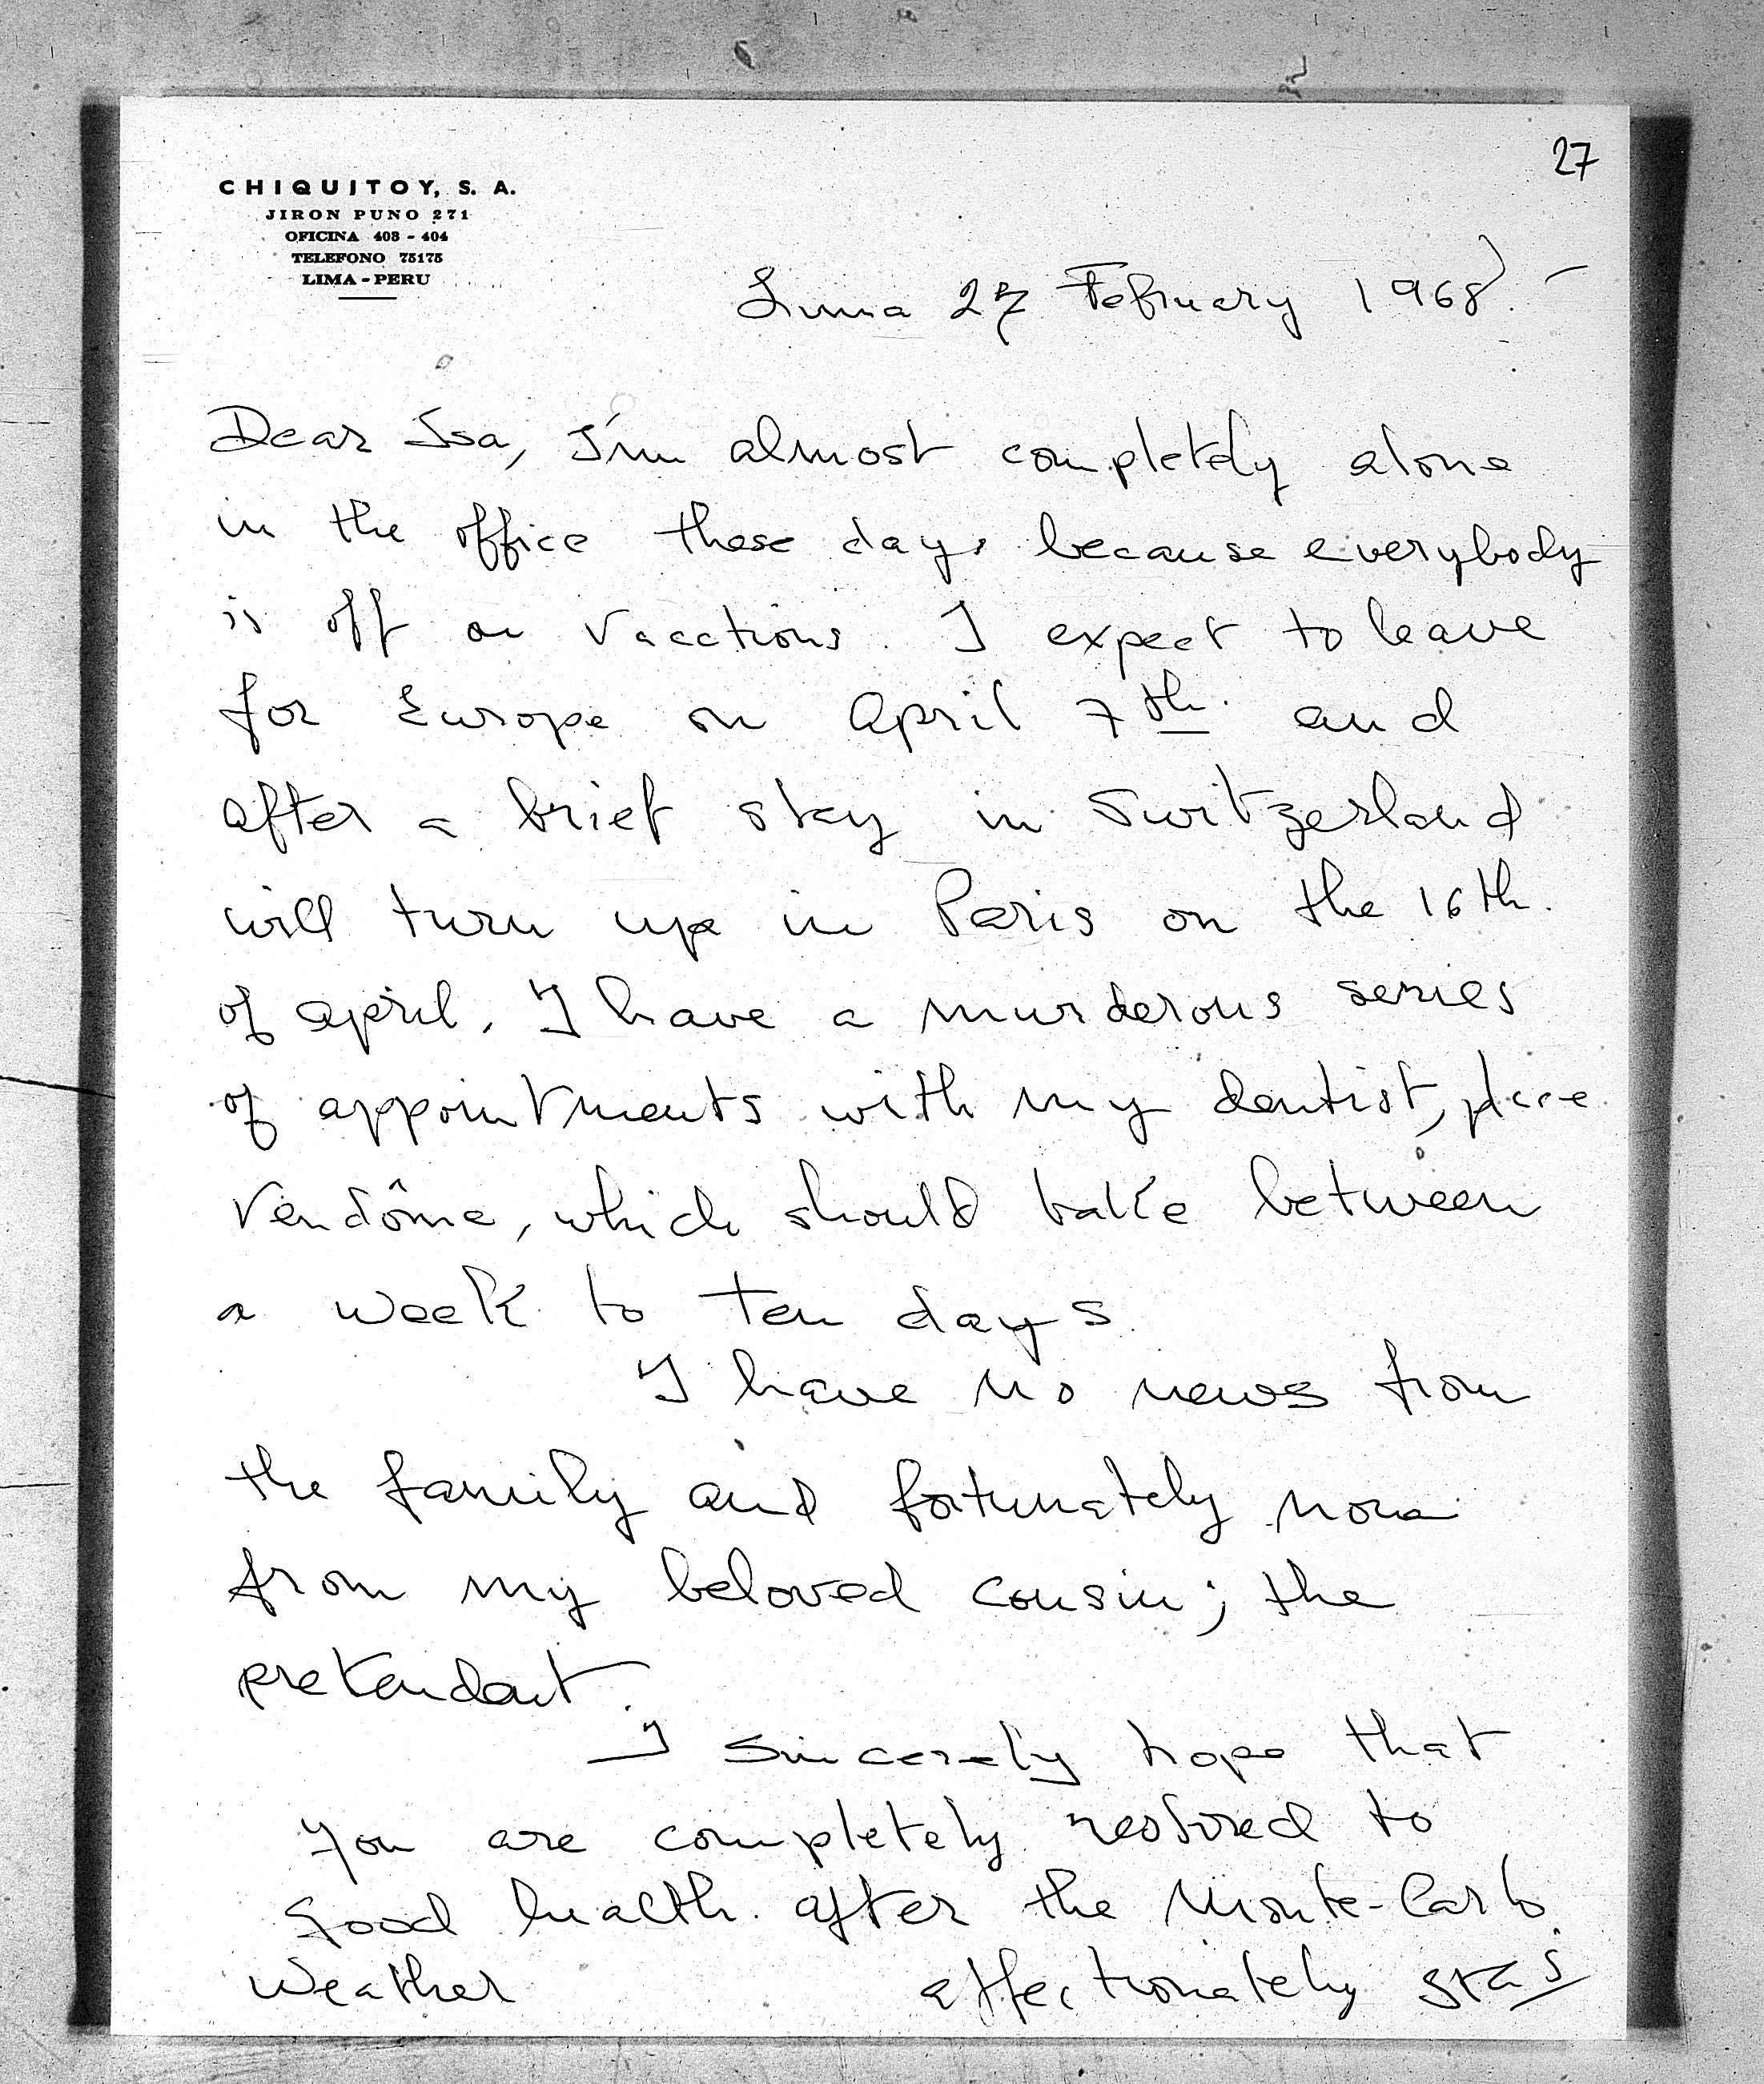 27
CHIQUITOY, S. A.
JIRON PUNO 271
OFICINA 403 - 404
TELEFONO 75175
LIMA - PERU
Lima 27 February 1968. -
Dear Isa, I'm almost completely alone
in the office these days because everybody
is off on vacations. I expect to leave
for Europe on April 7th. and
after a brief stay in Switzerland
will turn up in Paris on the 16th.
of april. I have a murderous series
of appointments with my dentist, place
Vendôme, which should take between
a week to ten days.
I have no news from
the family and fortunately none
from my beloved cousin; the
pretendant.
I sincerely hope that
you are completely restored to
good health after the Monte-Carlo
weather
affectionately Stas